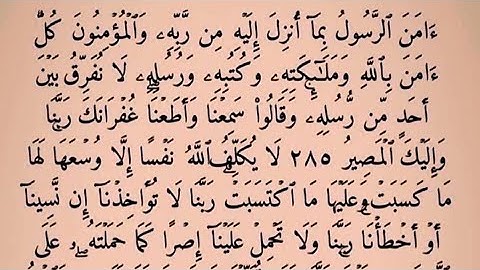 ءَامَنَ ٱلرَّسُولُ بِمَآ أُنزِلَ إِلَيۡهِ مِن رَّبِّهِۦ وَٱلۡمُؤۡمِنُونَۚ كُلٌّ
ءَامَنَ بِٱللَّهِ وَمَلَٰٓئِكَتِهِۦ وَكُتُبِهِۦ وَرُسُلِهِۦ لَا نُفَرِّقُ بَيۡنَ
أَحَدٖ مِّن رُّسُلِهِۦۚ وَقَالُواْ سَمِعۡنَا وَأَطَعۡنَاۖ غُفۡرَانَكَ رَبَّنَا
وَإِلَيۡكَ ٱلۡمَصِيرُ ٢٨٥ لَا يُكَلِّفُ ٱللَّهُ نَفۡسًا إِلَّا وُسۡعَهَاۚ لَهَا
مَا كَسَبَتۡ وَعَلَيۡهَا مَا ٱكۡتَسَبَتۡۗ رَبَّنَا لَا تُؤَاخِذۡنَآ إِن نَّسِينَآ
أَوۡ أَخۡطَأۡنَاۚ رَبَّنَا وَلَا تَحۡمِلۡ عَلَيۡنَآ إِصۡرٗا كَمَا حَمَلۡتَهُۥ عَلَى